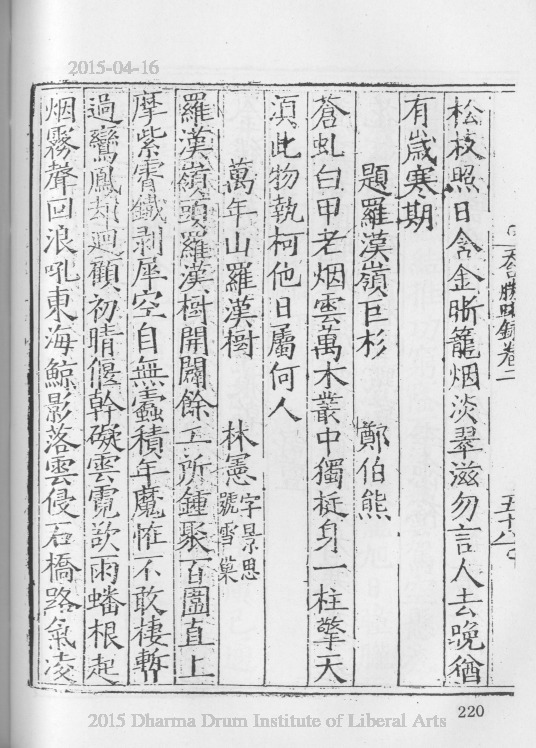 2015-04-16
松枝照日含金晰籠烟淡翠滋勿言人去晚猶
有嵗寒期
題羅漢嶺巨杉 鄭伯熊
蒼虬白甲老烟雲萬木叢中獨挺身一柱擎天
湏此物執柯他日屬何人
萬年山羅漢樹 林憲字景思號雪巢
羅漢嶺頭羅漢樹開闢餘工所鍾聚百圍直上
摩紫霄鐵剥犀空自無蠹積年魔恠不敢棲暫
過鸞鳳却廻顧初晴偃幹礙雲霓欲雨蟠根起
烟霧聲回浪吼東海鯨影落雲侵石橋路氣凌
天台勝蹟錄卷二
五十八
220
2015 Dharma Drum Institute of Liberal Arts